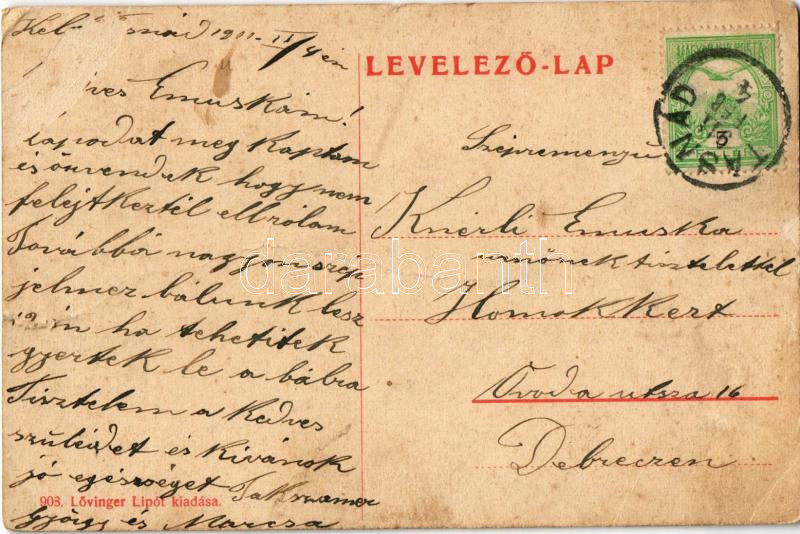 Kelt 1911 II/4 én
LEVELEZŐ-LAP
Emuskám!
lapodat meg kaptam
és örvendek hogy nem
felejtkeztél el rólam
Továbbá nagyon szép
jelmez bálunk lesz
12 én ha tehetitek
gyertek le a bálra
Tisztelem a kedves
szüleidet és kivánok
jó egésséget
György és Marcsa
903. Lővinger Lipót kiadása.
TASNÁD
Knérli Emuska
urnőnek tisztelettel
Homokkert
Óvoda utsza 16
Debreczen
darabanth